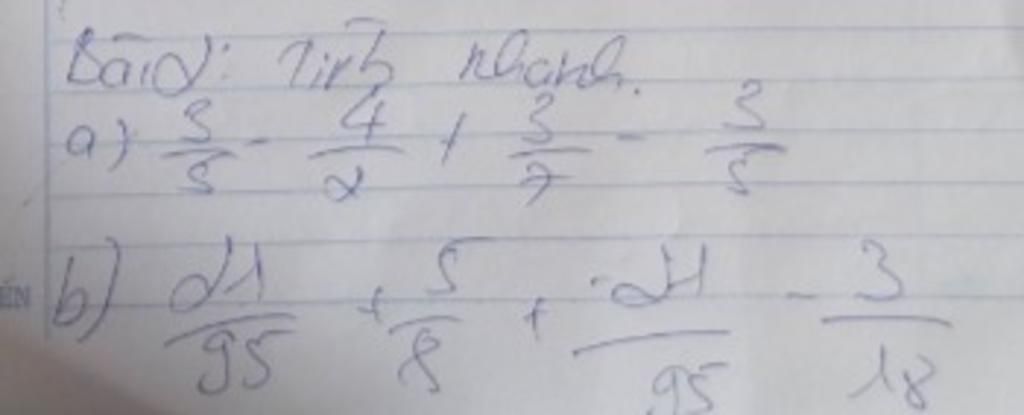 Bài 2: Tính nhanh.
a) 3/5 - 4/2 + 3/7 - 3/5
b) 21/95 + 5/8 + -21/95 - 3/18